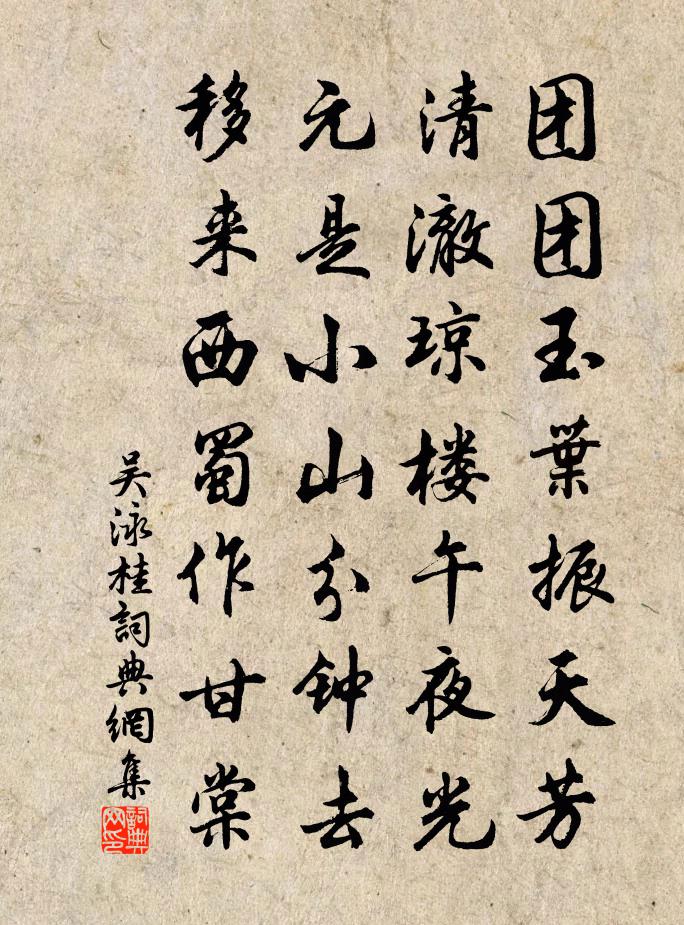 团团玉葉振天芳
清澈琼楼午夜光
元是小山分钟去
移来西蜀作甘棠
吴泳桂詞典網集
詞典网印